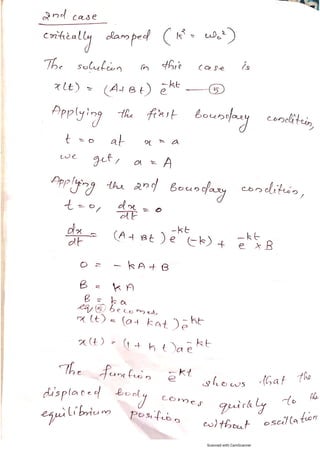 2nd case
critically damped (k² = ω₀²)
The solution in this case is
x(t) = (A+Bt) e^-kt —⑤
Applying the first boundary condition,
t = 0 at x = a
we get, a = A
Applying the 2nd Boundary condition,
t = 0, dx/dt = 0
dx/dt = (A+Bt) e^-kt (-k) + e^-kt × B
0 = - kA + B
B = kA
B = ka
eq ⑤ becomes,
x(t) = (a + kat) e^-kt
x(t) = (1 + kt) a e^-kt
The function e^-kt shows that the
displaced body comes quickly to the
equilibrium position without oscillation
Scanned with CamScanner